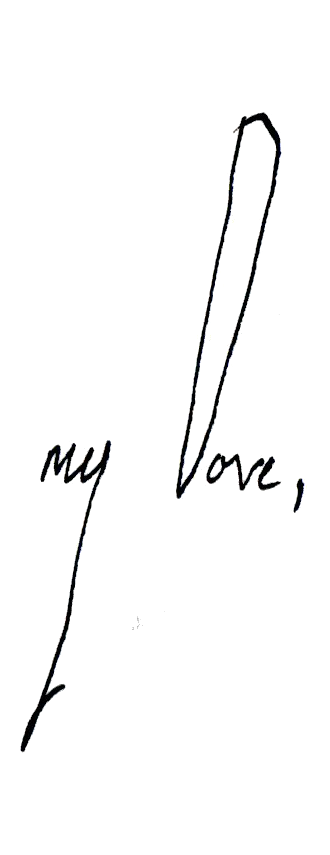 my love,